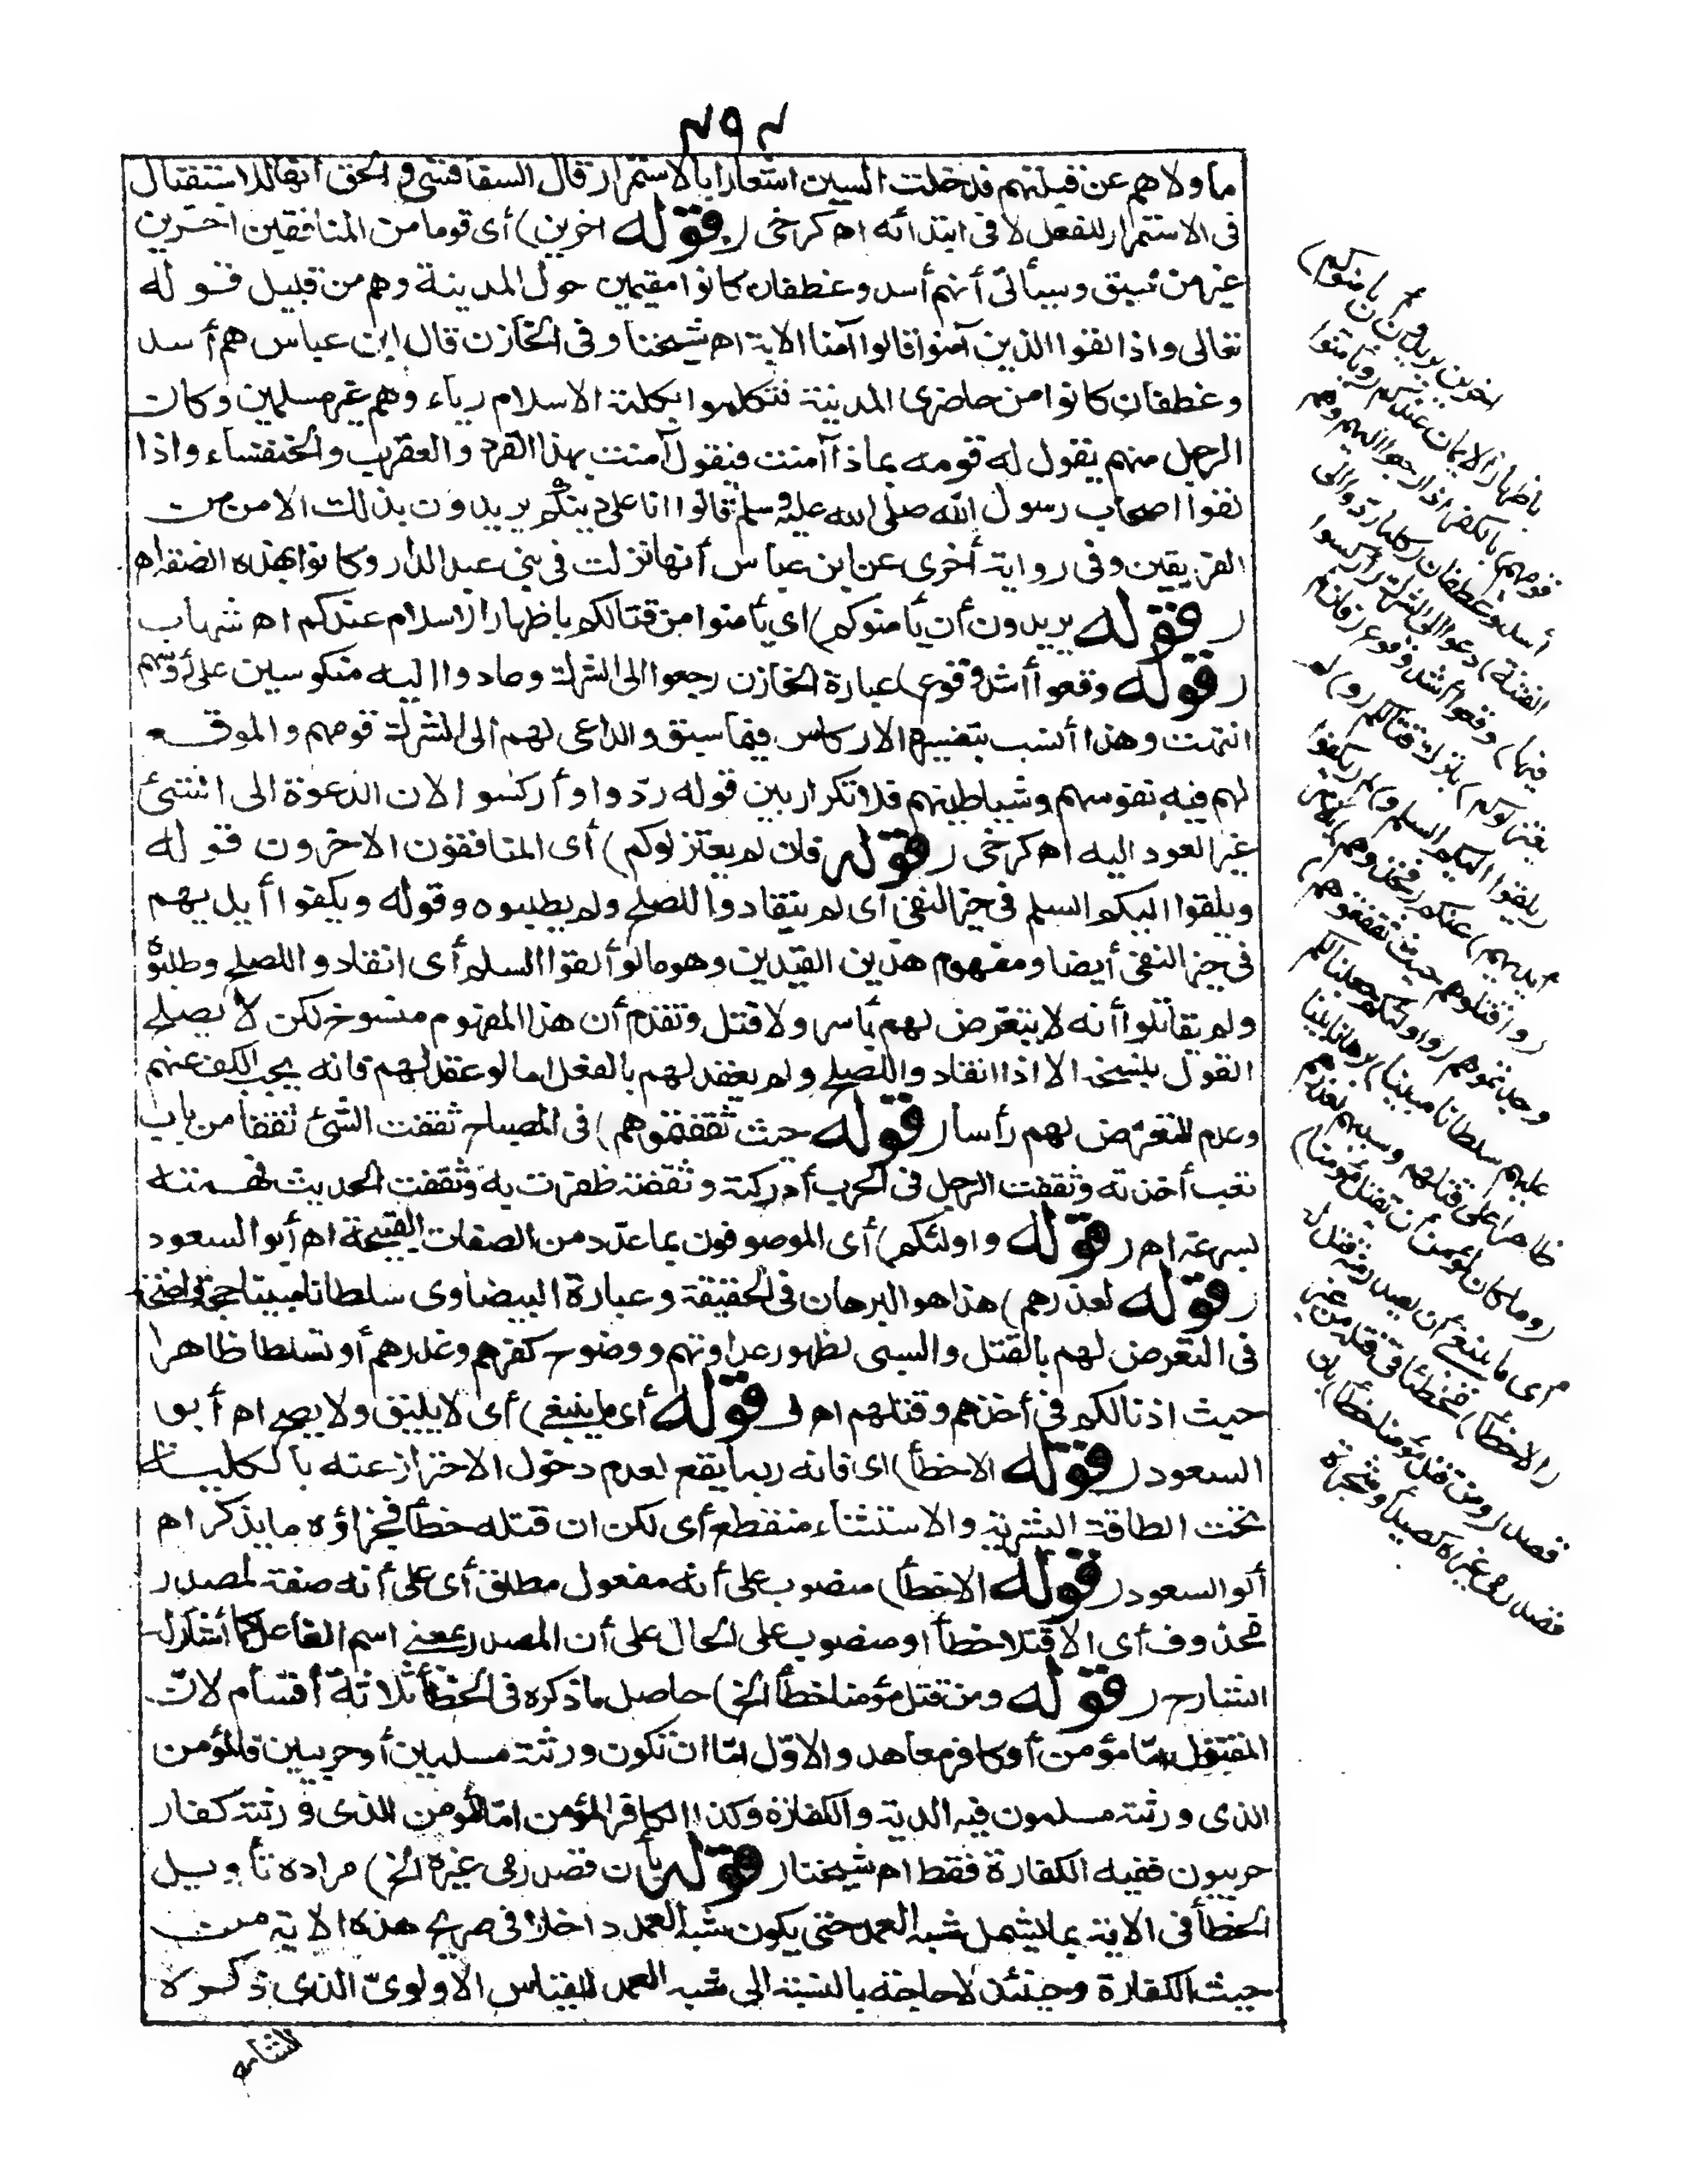 ما ولاهم عن قبلتهم فدخلت السين اشعارا بالاستمرار قال السفاقسي والحق أنها للاستقبال
فى الاستمرار للفعل لا فى ابتدائه اه كرخى (قوله اخرين) أى قوما من المنافقين اخرين
غير من سبق وسيأتى أنهم أسد وغطفان كانوا مقيمين حول المدينة وهم من قبيل قوله
تعالى واذا لقوا الذين آمنوا قالوا آمنا الاية اه شيخنا وفى الخازن قال ابن عباس هم أسد
وغطفان كانوا من حاضرى المدينة فتكلموا بكلمة الاسلام رياء وهم غير مسلمين وكان
الرجل منهم يقول له قومه بماذا آمنت فيقول آمنت بهذا القرد والعقرب والخنفساء واذا
لقوا اصحاب رسول الله صلى الله عليه وسلم قالوا انا على دينكم يريدون بذلك الامن من
الفريقين وفى رواية أخرى عن ابن عباس أنها نزلت فى بنى عبد الدار وكانوا بهذه الصفة اه
(قوله يريدون أن يأمنوكم) اى يأمنوا من قتالكم باظهار الاسلام عندكم اه شهاب
(قوله وقعوا أشد وقوع) عبارة الخازن رجعوا الى الشرك وعادوا اليه منكوسين على رؤسهم
انتهت وهذا أنسب بتفسير الاركاس فيما سبق والداعى لهم الى الشرك قومهم والموقع
لهم فيه نفوسهم وشياطينهم فلا تكرار بين قوله ردّوا وأركسوا لان الدعوة الى الشئ
غير العود اليه اه كرخى (قوله فان لم يعتزلوكم) أى المنافقون الاخرون قوله
ويلقوا اليكم السلم فى حيز النفى أى لم ينقادوا للصلح ولم يطلبوه وقوله ويكفوا أيديهم
فى حيز النفى أيضا ومفهوم هذين القيدين وهو ما لو ألقوا السلم أى انقادوا للصلح وطلبوه
ولم يقاتلوا أنه لا يتعرض لهم بأسر ولا قتل وتقدم أن هذا المفهوم منسوخ لكن لا يصلح
القول بنسخه الا اذا انقادوا للصلح ولم يعقد لهم بالفعل اما لو عقد لهم فانه يجب الكف عنهم
وعدم التعرض لهم رأسا (قوله حيث ثقفتموهم) فى المصباح ثقفت الشئ ثقفا من باب
تعب أخذته وثقفت الرجل فى الحرب أدركته وثقفته ظفرت به وثقفت الحديث فهمته
بسرعة اه (قوله واولئكم) أى الموصوفون بما عدد من الصفات القبيحة اه أبو السعود
(قوله لغدرهم) هذا هو البرهان فى الحقيقة وعبارة البيضاوى سلطانا مبينا حجة واضحة
فى التعرض لهم بالقتل والسبى لظهور عداوتهم ووضوح كفرهم وغدرهم أو تسلطا ظاهرا
حيث اذنا لكم فى أخذهم وقتلهم اه (قوله أى ما ينبغى) أى لا يليق ولا يصح اه أبو
السعود (قوله الاخطأ) اى فانه ربما يقع لعدم دخول الاحتراز عنه بالكلية
تحت الطاقة البشرية والاستثناء منقطع أى لكن ان قتله خطأ فجزاؤه ما يذكر اه
أبو السعود (قوله الاخطأ) منصوب على أنه مفعول مطلق أى على أنه صفة لمصدر
محذوف أى الا قتلا خطأ او منصوب على الحال على أن المصدر بمعنى اسم الفاعل كما أشار له
الشارح (قوله ومن قتل مؤمنا خطأ الخ) حاصل ما ذكره فى الخطأ ثلاثة أقسام لان
المقتول امّا مؤمن أو كافر معاهد والاوّل امّا ان تكون ورثته مسلمين أو حربيين فالمؤمن
الذى ورثته مسلمون فيه الدية والكفارة وكذا الكافر المؤمن امّا المؤمن الذى ورثته كفار
حربيون ففيه الكفارة فقط اه شيخنا (قوله بأن قصد رمى غيره الخ) مراده تأويل
الخطأ فى الاية بما يشمل شبه العمد حتى يكون شبه العمد داخلا فى صريح هذه الاية من
حيث الكفارة وحينئذ لا حاجة بالنسبة الى شبه العمد للقياس الاولوىّ الذى ذكره
اخرين يريدون أن يأمنوكم)
باظهار الايمان عندكم (ويأمنوا
قومهم) بالكفر اذا رجعوا اليهم وهم
أسد وغطفان (كلما ردّوا الى
الفتنة) دعوا الى الشرك (أركسوا
فيها) وقعوا أشد وقوع (فان لم
يعتزلوكم) بترك قتالكم (و) لم
(يلقوا اليكم السلم و) لم (يكفوا
أيديهم) عنكم (فخذوهم) بالاسر
(واقتلوهم حيث ثقفتموهم)
وجدتموهم (واولئكم جعلنا لكم
عليهم سلطانا مبينا) برهانا بينا
ظاهرا على قتلهم وسبيهم لغدرهم
(وما كان لمؤمن أن يقتل مؤمنا)
أى ما ينبغى أن يصدر منه قتل له
(الاخطأ) مخطئا فى قتله من غير
قصد (ومن قتل مؤمنا خطأ) بان
قصد رمى غيره كصيد أو شجرة